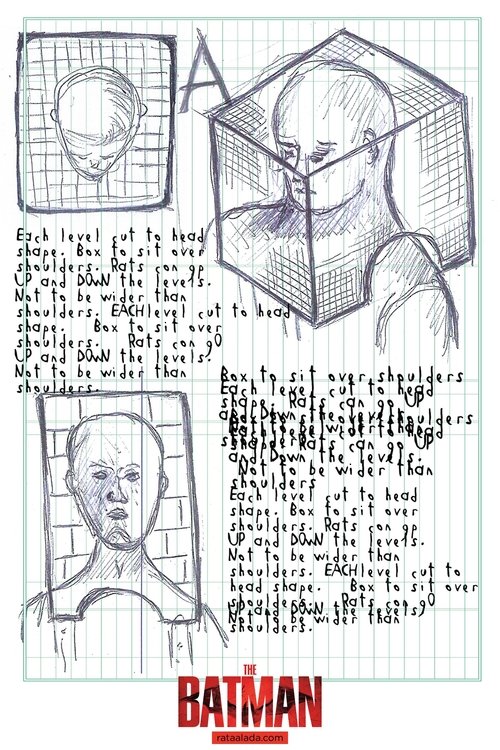 A
Each level cut to head
shape. Box to sit over
shoulders. Rats can go
UP and DOWN the levels.
Not to be wider than
shoulders. EACH level cut to head
shape. Box to sit over
shoulders. Rats can gO
UP and DOWN the levels.
Not to be wider than
shoulders.
Box to sit over shoulders
Each level cut to head
shape. Rats can go UP
Rats can go UP
and Down the levels.
Not to be wider than
shoulders
Each level cut to head
shape. Box to sit over
shoulders. Rats can go
UP and DOWN the levels.
Not to be wider than
shoulders. EACH level cut to
head shape. Box to sit over
shoulders. Rats can gO
UP and DOWN the levels,
Not to be wider than
shoulders.
THE
BATMAN
rataalada.com